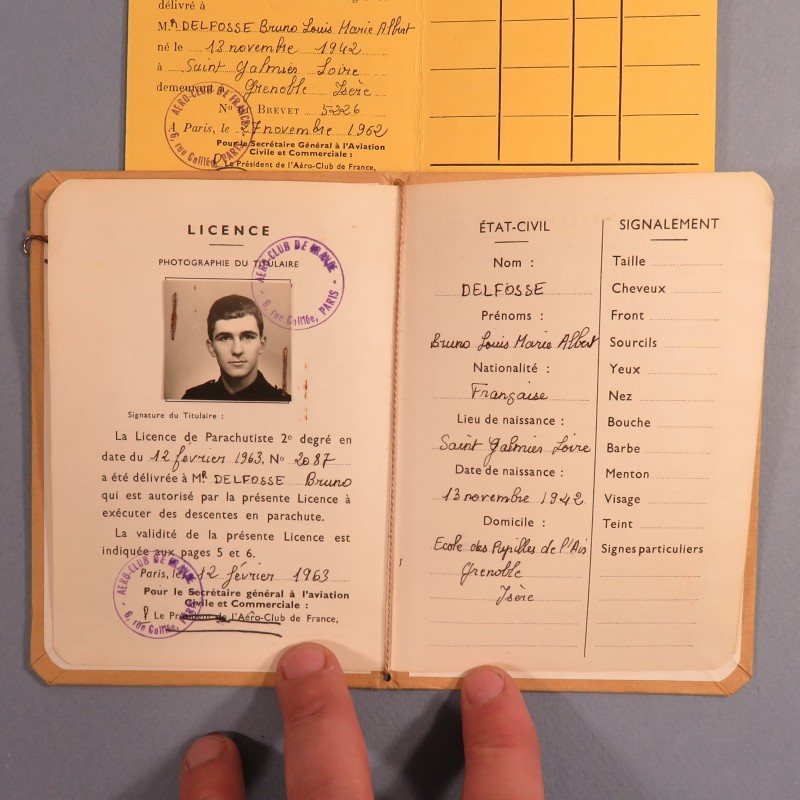 délivré à
M.r DELFOSSE Bruno Louis Marie Albert
né le 13 novembre 1942
à Saint Galmier Loire
demeurant Grenoble Isère
No BREVET 5326
A Paris, le 7 novembre 1962
Pour le Secrétaire Général à l'Aviation
Civile et Commerciale :
Le Président de l'Aéro-Club de France,
AERO-CLUB DE FRANCE
6, rue Galilée, PARIS
LICENCE
PHOTOGRAPHIE DU TITULAIRE
AERO-CLUB DE FRANCE
6, rue Galilée, PARIS
Signature du Titulaire :
La Licence de Parachutiste 2e degré en
date du 12 février 1963, No 2087
a été délivrée à Mr DELFOSSE Bruno
qui est autorisé par la présente Licence à
exécuter des descentes en parachute.
La validité de la présente Licence est
indiquée aux pages 5 et 6.
Paris, le 12 février 1963
Pour le Secrétaire général à l'aviation
Civile et Commerciale :
P Le Président de l'Aéro-Club de France,
AERO-CLUB DE FRANCE
6, rue Galilée, PARIS
ÉTAT-CIVIL
Nom :
DELFOSSE
Prénoms :
Bruno Louis Marie Albert
Nationalité :
Française
Lieu de naissance :
Saint Galmier Loire
Date de naissance :
13 novembre 1942
Domicile :
Ecole des Pupilles de l'Air
Grenoble
Isère
SIGNALEMENT
Taille
Cheveux
Front
Sourcils
Yeux
Nez
Bouche
Barbe
Menton
Visage
Teint
Signes particuliers